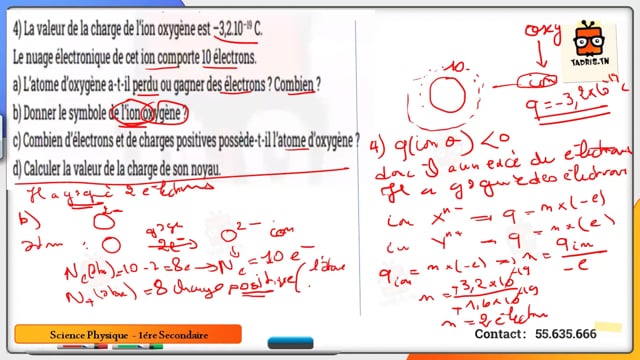 4) La valeur de la charge de l'ion oxygène est −3,2.10⁻¹⁹ C.
Le nuage électronique de cet ion comporte 10 électrons.
a) L'atome d'oxygène a-t-il perdu ou gagner des électrons ? Combien ?
b) Donner le symbole de l'ion oxygène ?
c) Combien d'électrons et de charges positives possède-t-il l'atome d'oxygène ?
d) Calculer la valeur de la charge de son noyau.
Il a gagné 2 électrons
b) O²⁻
atm : O gagne 2e⁻ O²⁻ ion
Nₑ(atm) = 10 − 2 = 8e⁻ → Nₑ = 10 e⁻
N₊(atm) = 8 charge positive
oxy
TADRIS.TN
10
ion
q = −3,2×10⁻¹⁹ C
4) q(ion O) < 0
donc il a un excé de électrons
Il a gagné des électrons
ion Xⁿ⁻ → q = n×(−e)
ion Yⁿ⁺ → q = n×(e)
q ion = n×(−e) → n = q ion / −e
n = −3,2×10⁻¹⁹ / −1,6×10⁻¹⁹
n = 2 électrons
Science Physique - 1ére Secondaire
Contact: 55.635.666